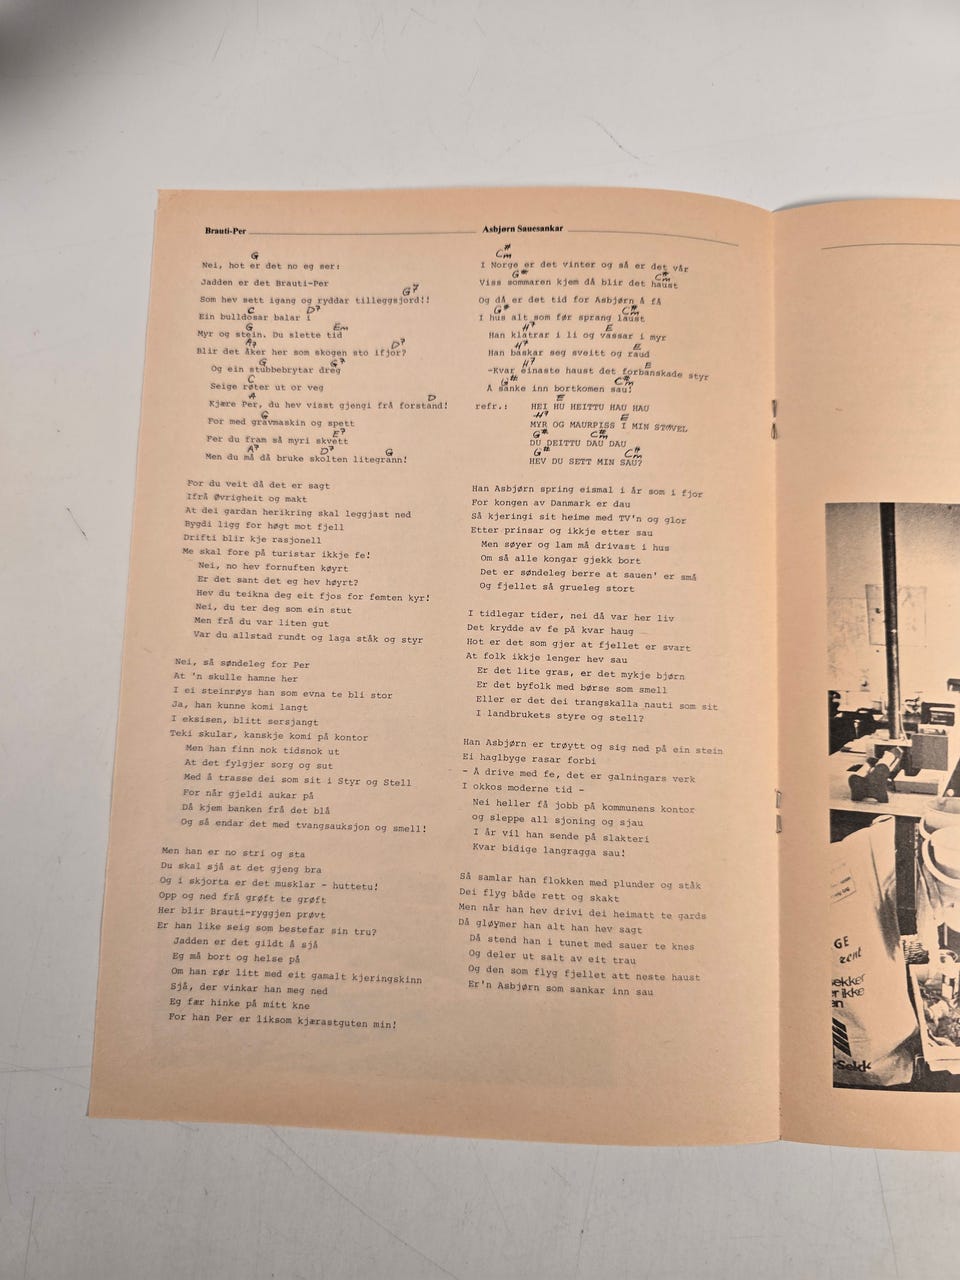 Brauti-Per
G
Nei, hot er det no eg ser:
Jadden er det Brauti-Per
G7
Som hev sett igang og ryddar tilleggsjord!!
C D7
Ein bulldosar balar i
G Em
Myr og stein. Du slette tid
A7 D7
Blir det åker her som skogen sto ifjor?
G G7
Og ein stubbebrytar dreg
C
Seige røter ut or veg
A D
Kjære Per, du hev visst gjengi frå forstand!
G
For med gravmaskin og spett
E7
Fer du fram så myri skvett
A7 D7 G
Men du må då bruke skolten litegrann!
For du veit då det er sagt
Ifrå Øvrigheit og makt
At dei gardan herikring skal leggjast ned
Bygdi ligg for høgt mot fjell
Drifti blir kje rasjonell
Me skal fore på turistar ikkje fe!
Nei, no hev fornuften køyrt
Er det sant det eg hev høyrt?
Hev du teikna deg eit fjos for femten kyr!
Nei, du ter deg som ein stut
Men frå du var liten gut
Var du allstad rundt og laga ståk og styr
Nei, så søndeleg for Per
At 'n skulle hamne her
I ei steinrøys han som evna te bli stor
Ja, han kunne komi langt
I eksisen, blitt sersjangt
Teki skular, kanskje komi på kontor
Men han finn nok tidsnok ut
At det fylgjer sorg og sut
Med å trasse dei som sit i Styr og Stell
For når gjeldi aukar på
Då kjem banken frå det blå
Og så endar det med tvangsauksjon og smell!
Men han er no stri og sta
Du skal sjå at det gjeng bra
Og i skjorta er det musklar - huttetu!
Opp og ned frå grøft te grøft
Her blir Brauti-ryggjen prøvt
Er han like seig som bestefar sin tru?
Jadden er det gildt å sjå
Eg må bort og helse på
Om han rør litt med eit gamalt kjeringskinn
Sjå, der vinkar han meg ned
Eg fær hinke på mitt kne
For han Per er liksom kjærastguten min!
Asbjørn Sauesankar
C#m
I Norge er det vinter og så er det vår
G# C#m
Viss sommaren kjem då blir det haust
Og då er det tid for Asbjørn å få
G# C#m
I hus alt som før sprang laust
H7 E
Han klatrar i li og vassar i myr
H7 E
Han baskar seg sveitt og raud
H7 E
-Kvar einaste haust det forbanskade styr
G# C#m
Å sanke inn bortkomen sau!
E
refr.: HEI HU HEITTU HAU HAU
H7 E
MYR OG MAURPISS I MIN STØVEL
G# C#m
DU DEITTU DAU DAU
G# C#m
HEV DU SETT MIN SAU?
Han Asbjørn spring eismal i år som i fjor
For kongen av Danmark er dau
Så kjeringi sit heime med TV'n og glor
Etter prinsar og ikkje etter sau
Men søyer og lam må drivast i hus
Om så alle kongar gjekk bort
Det er søndeleg berre at sauen' er små
Og fjellet så grueleg stort
I tidlegar tider, nei då var her liv
Det krydde av fe på kvar haug
Hot er det som gjer at fjellet er svart
At folk ikkje lenger hev sau
Er det lite gras, er det mykje bjørn
Er det byfolk med børse som smell
Eller er det dei trangskalla nauti som sit
I landbrukets styre og stell?
Han Asbjørn er trøytt og sig ned på ein stein
Ei haglbyge rasar forbi
- Å drive med fe, det er galningars verk
I okkos moderne tid -
Nei heller få jobb på kommunens kontor
og sleppe all sjoning og sjau
I år vil han sende på slakteri
Kvar bidige langragga sau!
Så samlar han flokken med plunder og ståk
Dei flyg både rett og skakt
Men når han hev drivi dei heimatt te gards
Då gløymer han alt han hev sagt
Då stend han i tunet med sauer te knes
Og deler ut salt av eit trau
Og den som flyg fjellet att neste haust
Er'n Asbjørn som sankar inn sau